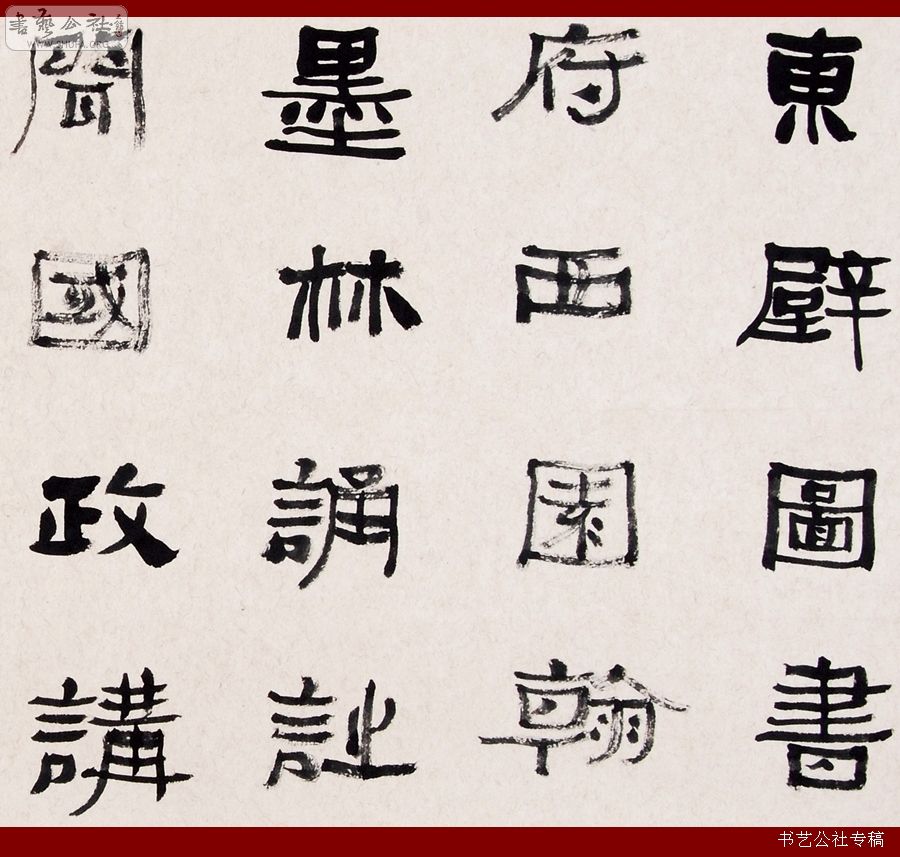 書藝公社
WWW.SHUFA.ORG.CN
東壁圖書
府西園翰
墨林誦詩
聞國政講
书艺公社专稿